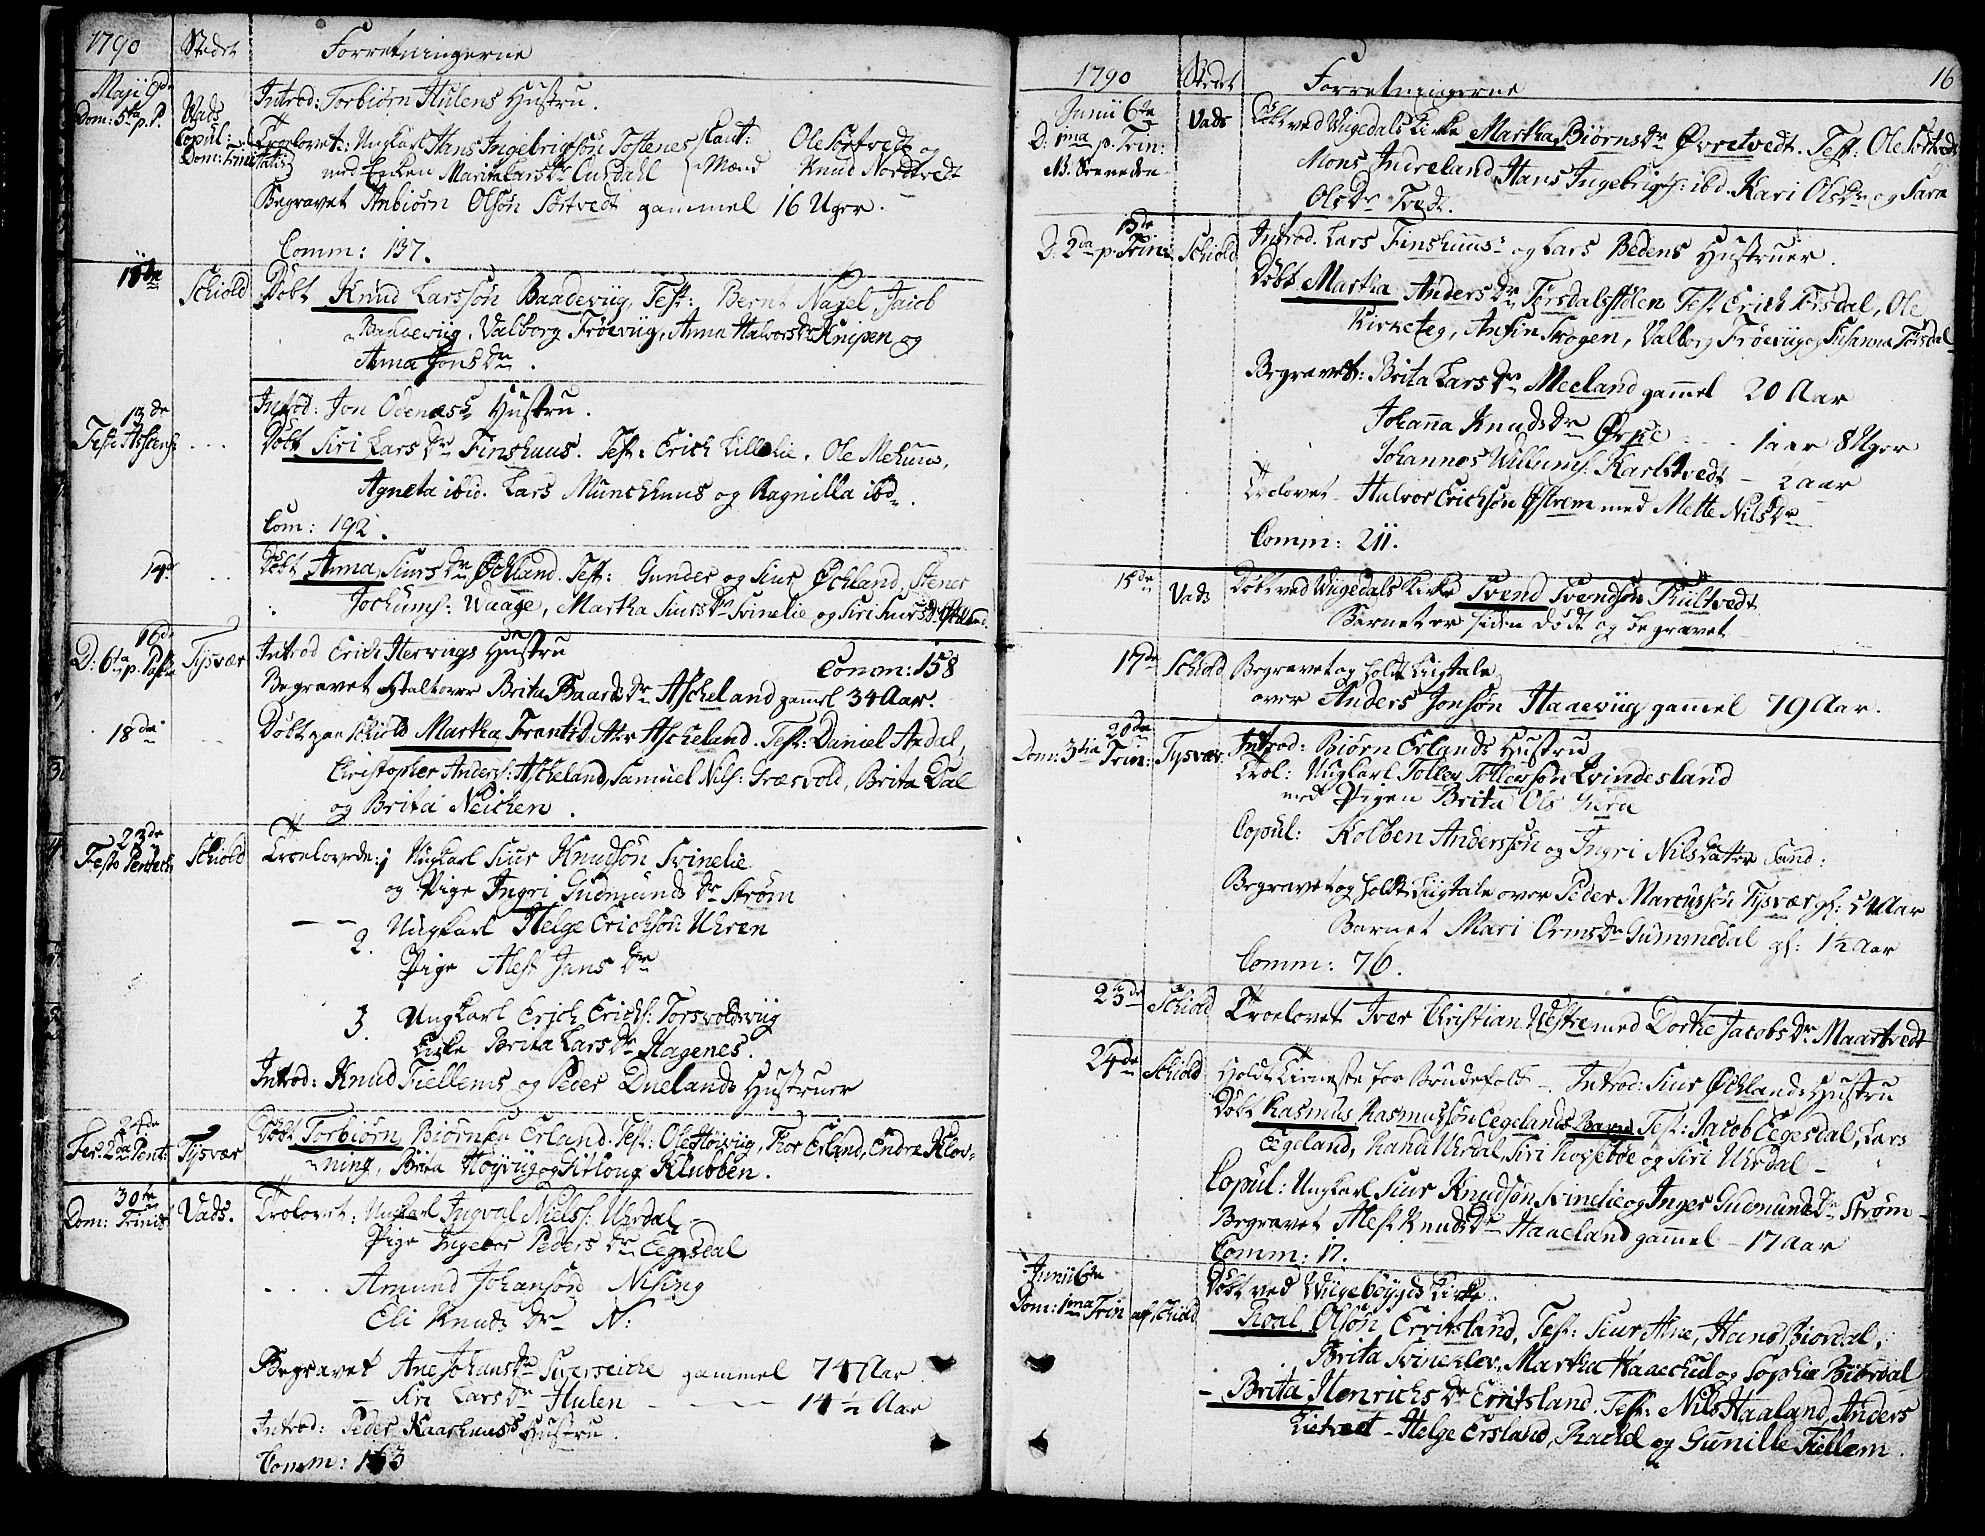 1790 Stedet Forretningerne
Maji 9de Introd: Torbiörn Hulens Hustru.
Dom: 5ta p. P. Vads
Copul: Troelovet: Ungkarl Hans Ingebrigtsön Tostenes Caut: Ole Sörtvedt og
Dom: Trinitatis med Enken Marita Larsdr Lursdahl Mænd Knud Nordtvedt
Begravet Anbiörn Olsön Sörtvedt gammel 16 Uger.
Comm: 137.
Schiold Döbt Knud Larssön Baadeviig, Test: Bernt Nagel, Jacob
Baadeviig, Valborg Fröeviig, Anna Halvorsdr Knipen og
Anna Jonsdr.
13de Introd: Jon Odenæs Hustru.
Döbt Siri Larsdr Finshuus. Test: Erich Lillelie, Ole Mehuus,
Agneta ibid. Lars Munchhuus og Ragnilla ibd.
Com: 192.
Döbt Anna Siursdr Öchland. Test: Gunder og Siur Öchland, Stener
Jochums: Waage, Martha Siursdr Svinelie og Siri Siursdr Öchland.
16de
D: 6ta p. Pasch Tysvær Introd Erich Hervigs Hustru Comm: 158
Begravet Brita Baardsdr Ascheland gamel 34 Aar.
18de Döbt paa Schiold Martha Frantsdatter Ascheland. Test: Daniel Aadal,
Christopher Anders: Ascheland, Samuel Nils: Græsvold, Brita Dal
og Brita Neichen.
23de
Festo Pentech Schiold Troelovede: 1 Ungkarl Siur Knudsön Svinelie
og Pige Ingri Gudmundsdr Ström
2. Ungkarl Helge Erichsön Uhren
Pige Alest Jansdr
3. Ungkarl Erich Erichs: Torsvoldsviig
Enke Brita Larsdr Hagenes.
Introd: Knud Tiellems og Peder Duelands Hustruer
24de
Fer: 2da Pent: Tysvær Döbt Torbiörn Biörnsen Erland. Test: Ole Höiviig, Thor Erland, Endre Klov-
ning, Brita Höyviig og Sitloug Klubben.
30te
Dom: Trinit Vads. Trolovet: Ungkarl Ingval Nielss: Uhrdal
Pige Ingebor Pedersdr Eegesdal
Amund Johansön Nising
Eli Knudsdr N:
Begravet Ane Johansdr Svereiche gammel 74 Aar
Siri Larsdr Hulen 14 1/2 Aar
Introd: Peder Kaarhuuss Hustru.
Comm: 163
1790 Stedet Forretningerne 16
Junii 6te Vads Döbt ved Wigedals Kirke Martha Biörnsdr Övretvedt. Test: Ole Sörtvedt
D: 1ma p. Trin: Mons Indreland, Hans Ingebrigts: ibd. Kari Olsdr og Sara
Olsdr Tvedt.
13de
D. 2da p. Trin: Schiold Introd. Lars Finshuus: og Lars Bedens Hustruer.
Döbt Martha Andersdr Törsdalsstölen Test Erich Törsdal, Ole
Kirketeg, Anfin Skogen, Valborg Fröeviig og Susanna Törsdal
Begravet: Brita Larsdr Meeland gamel 20 Aar
Johanna Knudsdr Örke 1 aar 8 Uger
Johannes Willums: Karlstvedt 1/2 aar
Trolovet Halvor Erichsön Östrem med Mette Nilsdr
Comm: 211.
15de Vads Döbt ved Wiigedals Kirke Svend Svendsön Fiultvedt
Barnet er siden död og begravet
17de Schiold Begravet og holdt Liigtale
over Anders Jonsön Haaeviig gammel 79 Aar.
20de
Dom: 3tia Trin: Tysvær Introd: Biörn Erlands Hustru
Trol: Ungkarl Tollev Tollevsön Qvindesland
med Pigen Brita Ols
Copul: Kolben Anderssön og Ingri Nilsdatter Sand:
Begravet og holdt Liigtale over Peder Marcussön Tysvær gl: 54 Aar
Barnet Mari Ormsdr Gummedal gl: 1 1/2 Aar
Comm: 76.
23de Schiold Troelovet Iver Christian Nestre med Dorthe Jacobsdr Maartvedt
24de Schiold Holdt Tieneste for Brudefolk - Introd: Siur Öchlands Hustru
Döbt Rasmus Rasmussön Eegelands Barn Test: Jacob Eegesdal, Lars
Eegeland, Rand Uhrdal, Siri Rosseböe og Siri Uhrdal
Copul: Ungkarl Siur Knudsön Svinelie og Inger Gudmundsdr Ström
Begravet Alest Knudsdr Haaeland gammel 17 Aar
Comm: 17.
Junii 6te Döbt ved Wiigebøygds Kirke.
Dom: 1ma Trin af Schiold Roal Olsön Erritsland, Test: Siur Alne, Hans Biordal,
Brita Svinehlev, Martha Haaechul og Sophia Biördal
Brita Henrichsdr Erritsland. Test: Nils Haaland, Anders
Helge Ersland, Rachel og Gunille Tiellem.